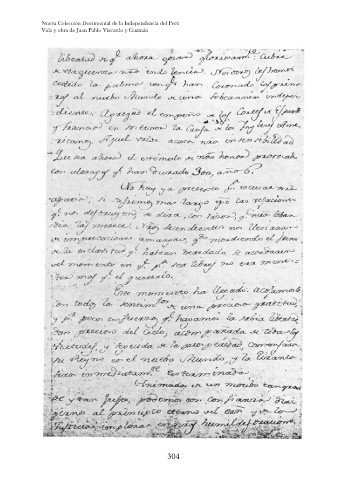 Nueva Colección Documental de la Independencia del Perú
Vida y obra de Juan Pablo Viscardo y Guzmán
libertad q.e ahora gozan gloriosam.te cubre
de verguenza
cedido la palma con q.e han coronado los primeros
al nuevo Mundo de una soberania indepen
diente. Agregad el empeño de las Cortes de España
y Francia en sostener la Causa de los Ingleses Ame
ricanos. Aquel valor acusa nra insensibilidad
Que sea ahora el estimulo de nro honor provocado
con ultrages q.e han durado 300 años.
No hay ya pretexto p.a escusar nra
apatia; si sufrimos mas largo t.po las vejaciones
q.e nos destruyen, se dira con razon, q.e nra cobar
dia las merece. Nros descendientes nos llenaran
de imprecaciones amargas, q.do mordiendo el freno
de la esclavitud q.e habran heredado se acordaren
del momento en q.e p.a ser libres no era menes
ter mas q.e el quererlo.
Este momento ha llegado. Acojamosle
con todo los sentim.tos de una preciosa gratitud,
y p.r pocos esfuerzos q.e hagamos la sabia libertad,
don precioso del Cielo, acompañada de todas las
virtudes, y seguida de la prosperidad, comenzara
su Reyno en el nuevo Mundo, y la tirania
sera inmediatam.te exterminada.
Animados de un motivo tan gran
de y tan justo, podemos con confianza diri
girnos al principio eterno del orden y de la
justicia, implorar en nras humildes oraciones
304